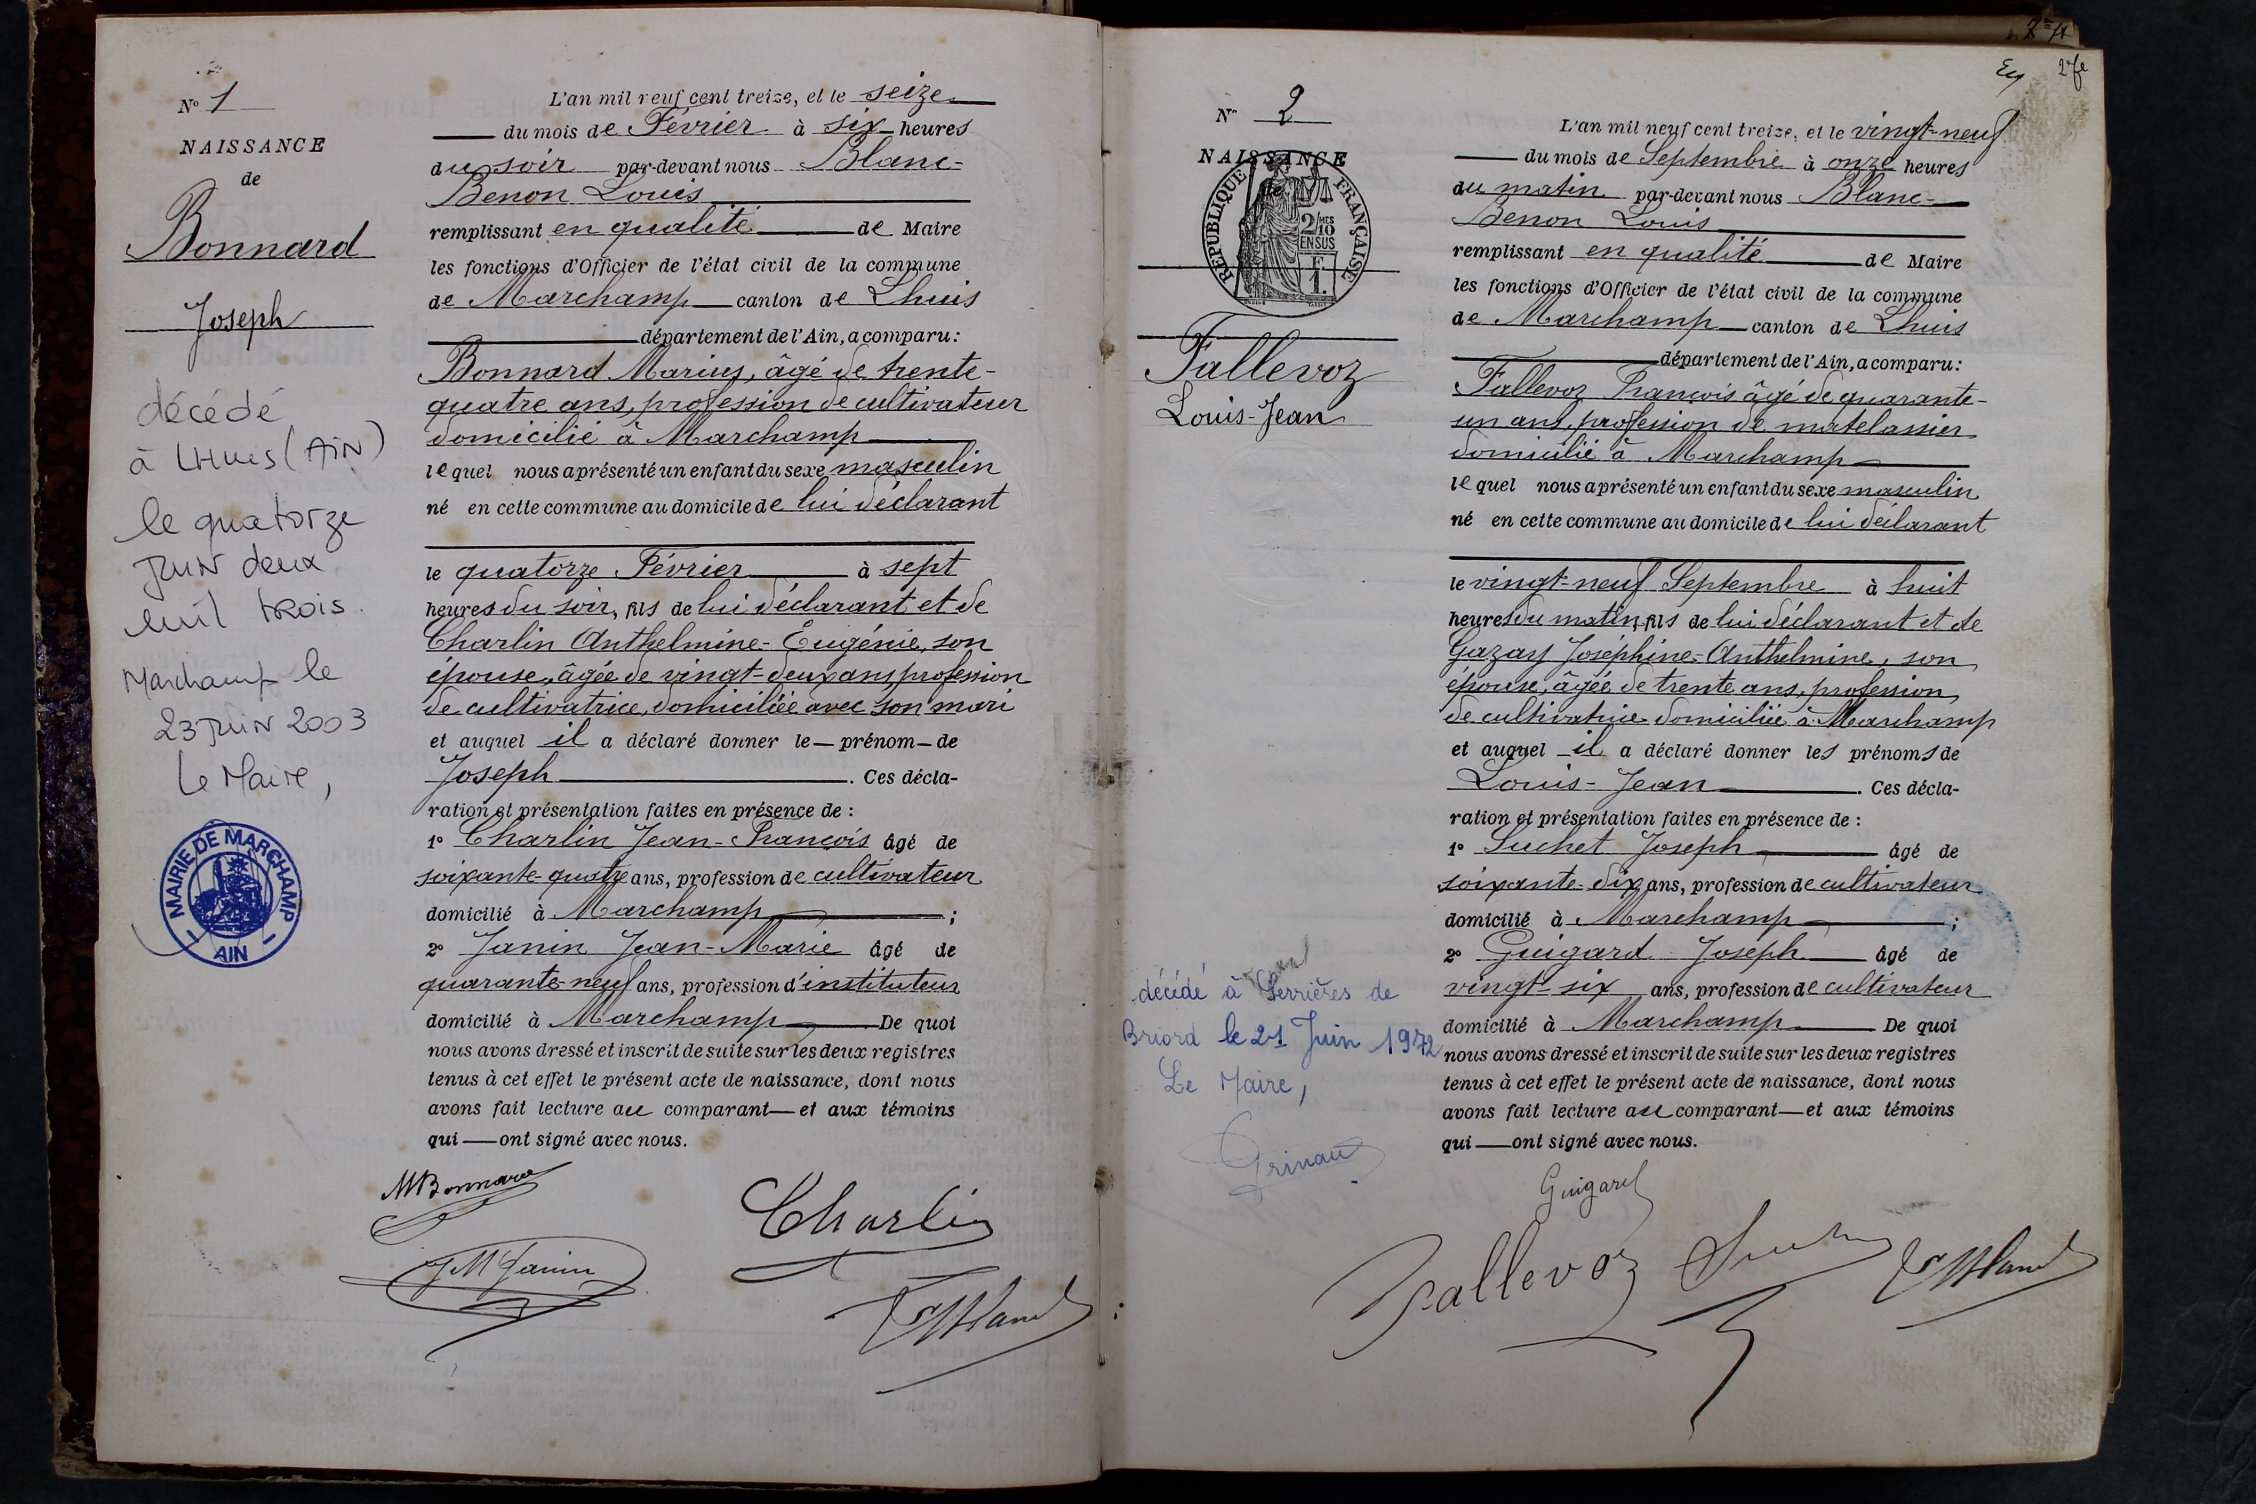 N° 1
NAISSANCE
de
Bonnard
Joseph
décédé
à LHuis (AiN)
le quatorze
JuiN deux
mil trois.
Marchamp le
23 JuiN 2003
Le Maire,
MAIRIE DE MARCHAMP
AIN
L'an mil neuf cent treize, et le seize
du mois de Février à six heures
du soir par-devant nous Blanc-
Benon Louis
remplissant en qualité de Maire
les fonctions d'Officier de l'état civil de la commune
de Marchamp canton de Lhuis
département de l'Ain, a comparu :
Bonnard Marius, âgé de trente-
quatre ans, profession de cultivateur
domicilié à Marchamp
lequel nous a présenté un enfant du sexe masculin
né en cette commune au domicile de lui déclarant
le quatorze Février à sept
heures du soir, fils de lui déclarant et de
Charlin Anthelmine-Eugénie, son
épouse, âgée de vingt-deux ans, profession
de cultivatrice, domiciliée avec son mari
et auquel il a déclaré donner le prénom de
Joseph. Ces décla-
ration et présentation faites en présence de :
1° Charlin Jean-François âgé de
soixante-quatre ans, profession de cultivateur
domicilié à Marchamp ;
2° Janin Jean-Marie âgé de
quarante-neuf ans, profession d'instituteur
domicilié à Marchamp De quoi
nous avons dressé et inscrit de suite sur les deux registres
tenus à cet effet le présent acte de naissance, dont nous
avons fait lecture au comparant et aux témoins
qui ont signé avec nous.
MBonnard
Charlin
JMJanin
27e
N° 2
NAISSANCE
de
RÉPUBLIQUE FRANÇAISE
2/10 MES
EN SUS
F.
1.
Fallevoz
Louis-Jean
décédé à Serrières de
Briord le 21 Juin 1972
Le Maire,
L'an mil neuf cent treize, et le vingt-neuf
du mois de Septembre à onze heures
du matin par-devant nous Blanc-
Benon Louis
remplissant en qualité de Maire
les fonctions d'Officier de l'état civil de la commune
de Marchamp canton de Lhuis
département de l'Ain, a comparu :
Fallevoz François âgé de quarante-
un ans, profession de matelassier
domicilié à Marchamp
lequel nous a présenté un enfant du sexe masculin
né en cette commune au domicile de lui déclarant
le vingt-neuf Septembre à huit
heures du matin, fils de lui déclarant et de
Gazay Joséphine-Anthelmine, son
épouse, âgée de trente ans, profession
de cultivatrice domiciliée à Marchamp
et auquel il a déclaré donner les prénoms de
Louis-Jean. Ces décla-
ration et présentation faites en présence de :
1° Suchet Joseph âgé de
soixante-dix ans, profession de cultivateur
domicilié à Marchamp ;
2° Guigard Joseph âgé de
vingt-six ans, profession de cultivateur
domicilié à Marchamp De quoi
nous avons dressé et inscrit de suite sur les deux registres
tenus à cet effet le présent acte de naissance, dont nous
avons fait lecture au comparant et aux témoins
qui ont signé avec nous.
Guigard
Fallevoz